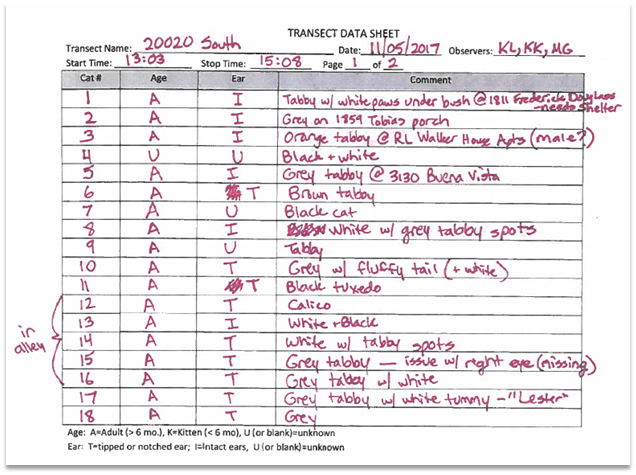 TRANSECT DATA SHEET
Transect Name: 20020 South Date: 11/05/2017 Observers: KL, KK, MG
Start Time: 13:03 Stop Time: 15:08 Page 1 of 2
Cat # Age Ear Comment
1 A I Tabby w/ white paws under bush @ 1811 Frederick Douglass
-needs shelter
2 A I Grey on 1859 Tobias porch
3 A I Orange tabby @ RL Walker House Apts (male?)
4 U U Black + white
5 A I Grey tabby @ 3130 Buena Vista
6 A T Brown tabby
7 A U Black cat
8 A I White w/ grey tabby spots
9 A U Tabby
10 A T Grey w/ fluffy tail (+ white)
11 A T Black tuxedo
12 A T Calico
13 A I White + Black
in alley
14 A T White w/ tabby spots
15 A T Grey tabby — issue w/ right eye (missing)
16 A T Grey tabby w/ white
17 A T Grey tabby w/ white tummy - "Lester"
18 A T Grey
Age: A=Adult (> 6 mo.), K=Kitten (< 6 mo), U (or blank)=unknown
Ear: T=tipped or notched ear; I=Intact ears, U (or blank)=unknown